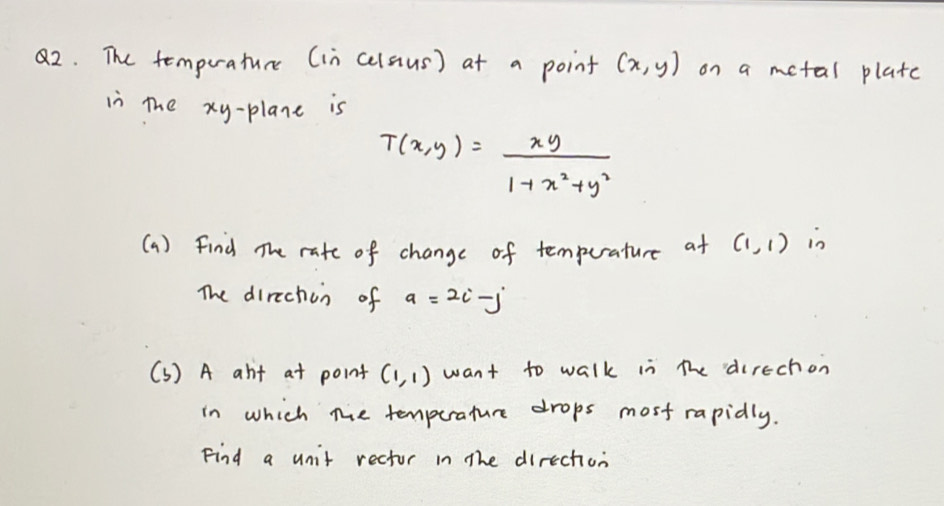 Q2. The temperature (in celsius) at a point (x,y) on a metal plate
in the xy-plane is
T(x,y) = xy
1+x²+y²
(a) Find the rate of change of temperature at (1,1) in
the direction of a = 2i-j
(b) A aht at point (1,1) want to walk in the direction
in which the temperature drops most rapidly.
Find a unit vector in the direction